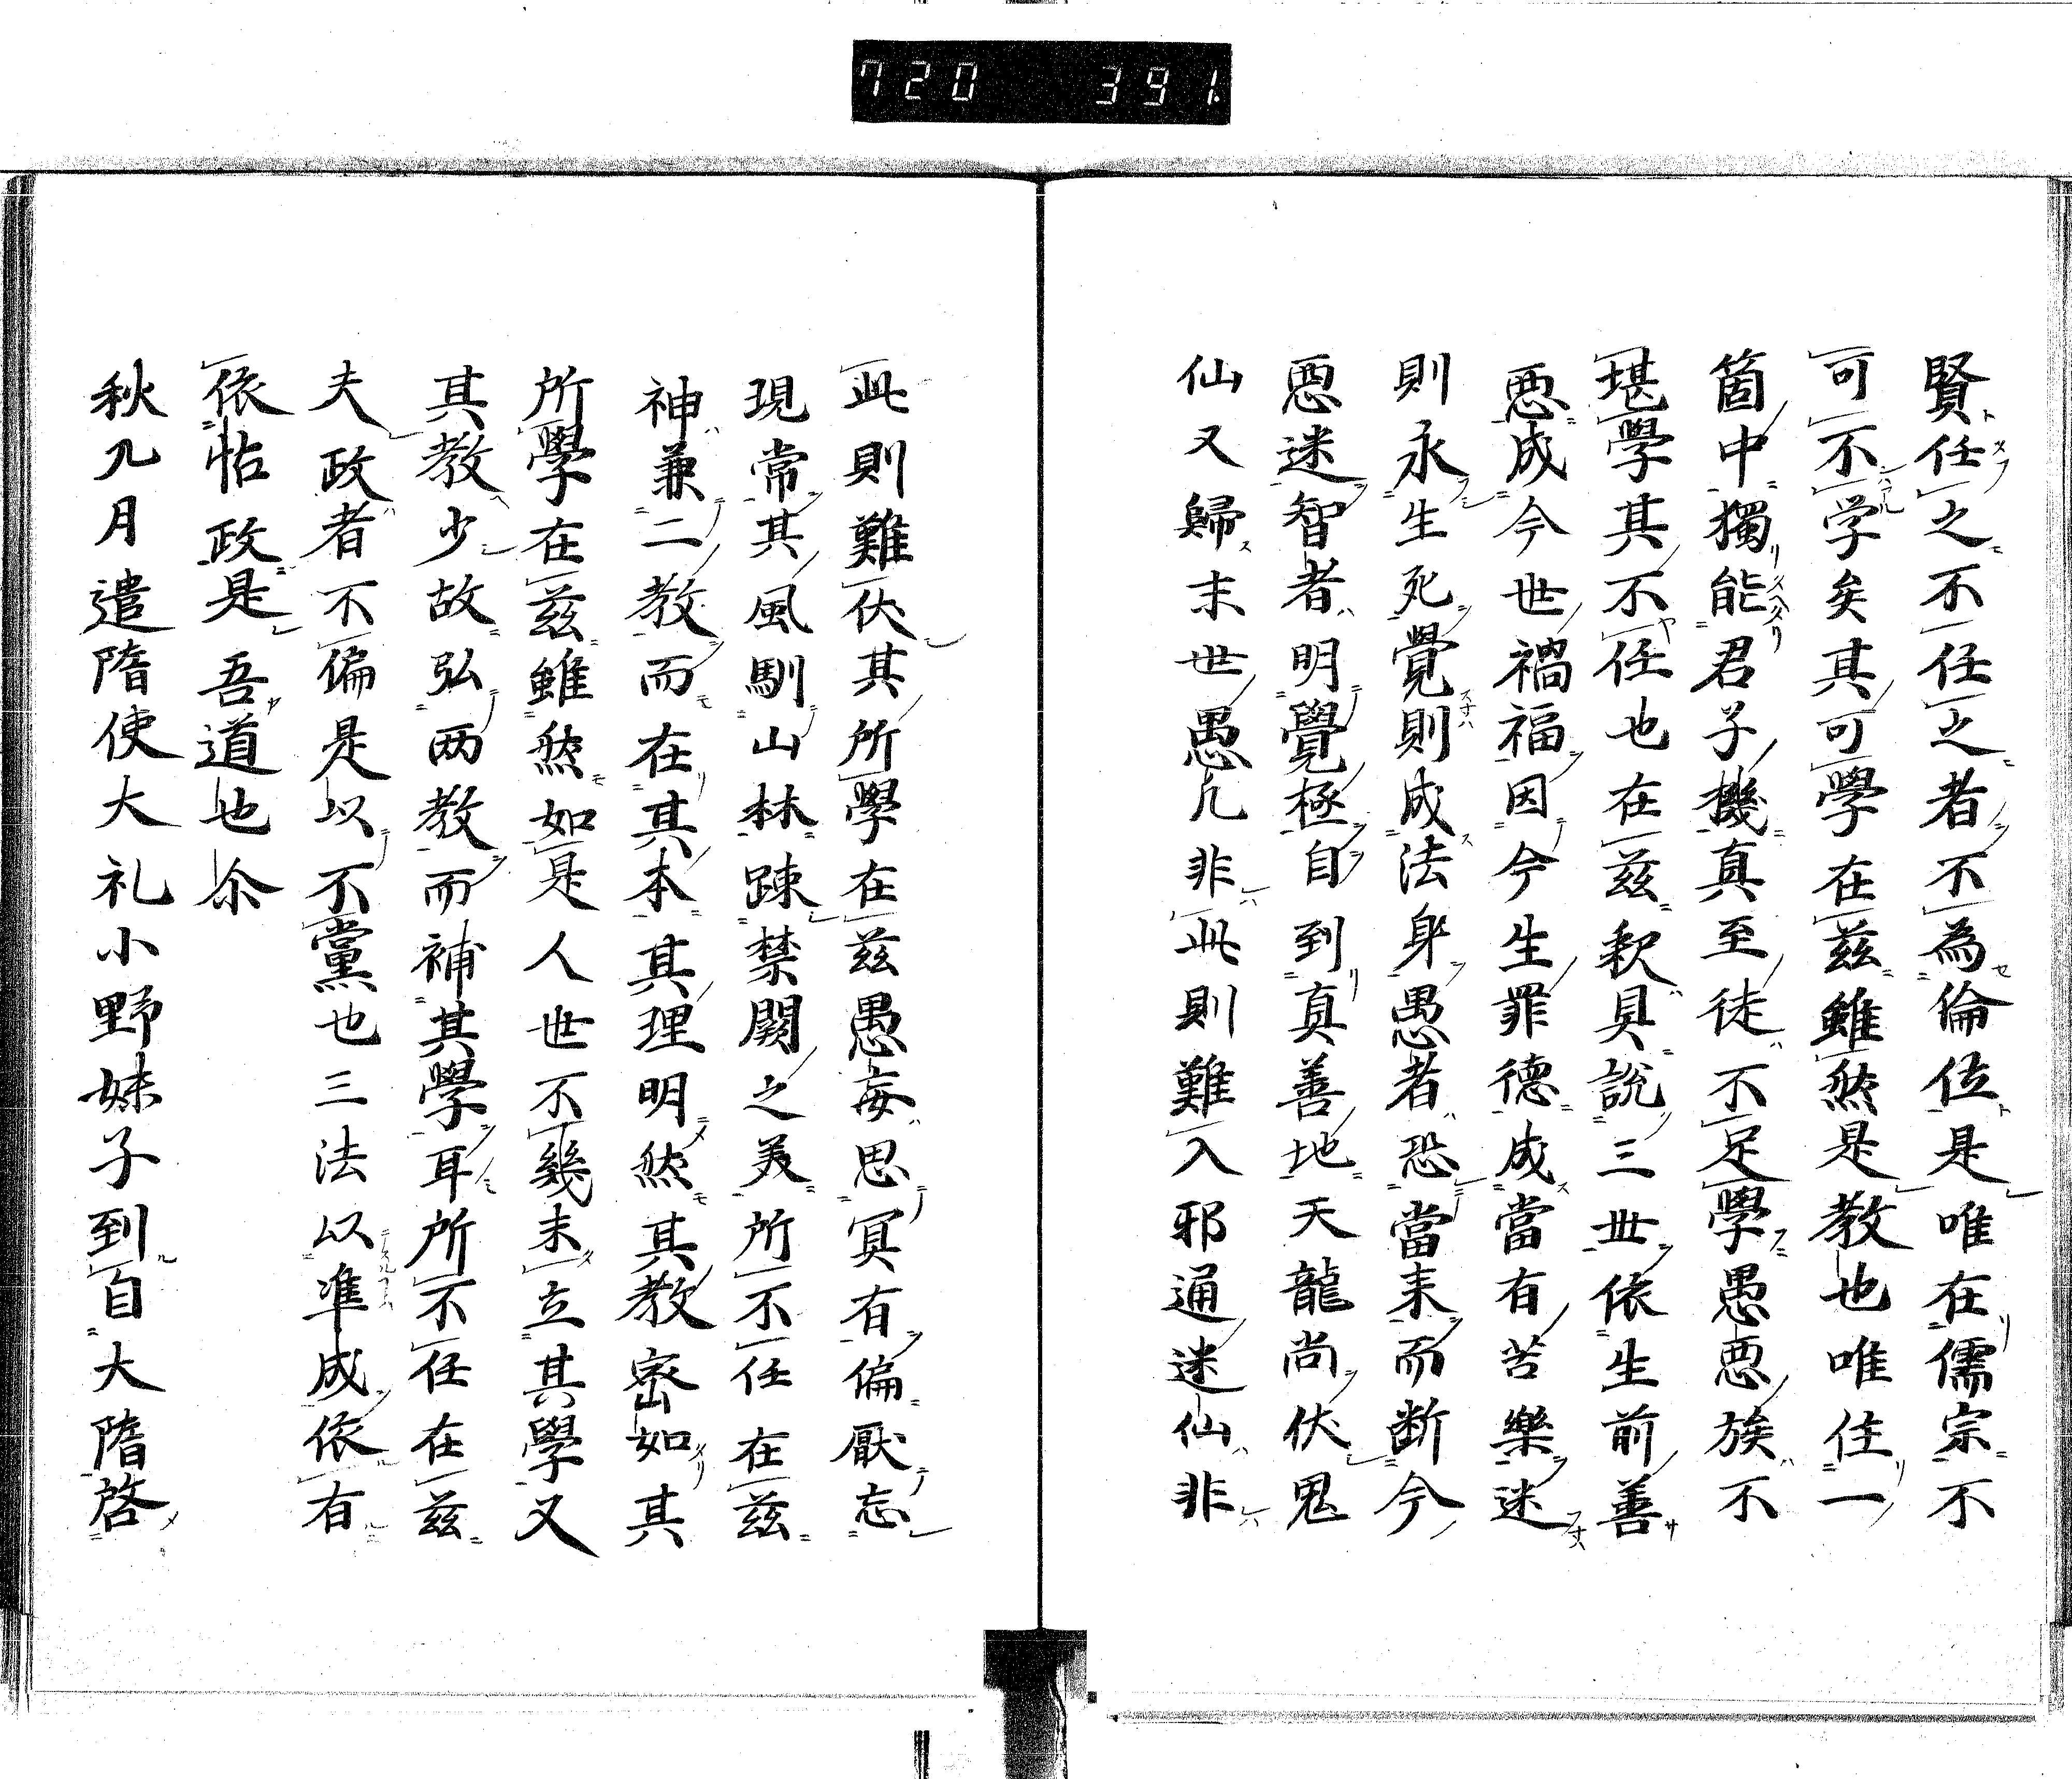 720 391
賢任之不任之者不為倫位是唯在儒宗不
可不学矣其可學在茲雖然是教也唯住一
箇中獨能君子機真至徒不足學愚悪族不
堪學其不任也在茲釈具説三世依生前善
悪成今世禍福因今生罪德成當有苦樂迷
則永生死覺則成法身愚者恐當来而断今
悪迷智者明覺極自到真善地天龍尚伏鬼
仙又歸末世愚凡非此則難入邪通迷仙非
此則難伏其所學在茲愚妄思冥有偏厭忘
現常其風馴山林踈禁闕之美所不任在茲
神兼二教而在其本其理明然其教密如其
所學在茲雖然如是人世不幾未立其學又
其教少故弘两教而補其學耳所不任在茲
夫政者不偏是以不黨也三法以準成依有
依怙政是吾道也尒
秋九月遣隋使大礼小野妹子到自大隋啓